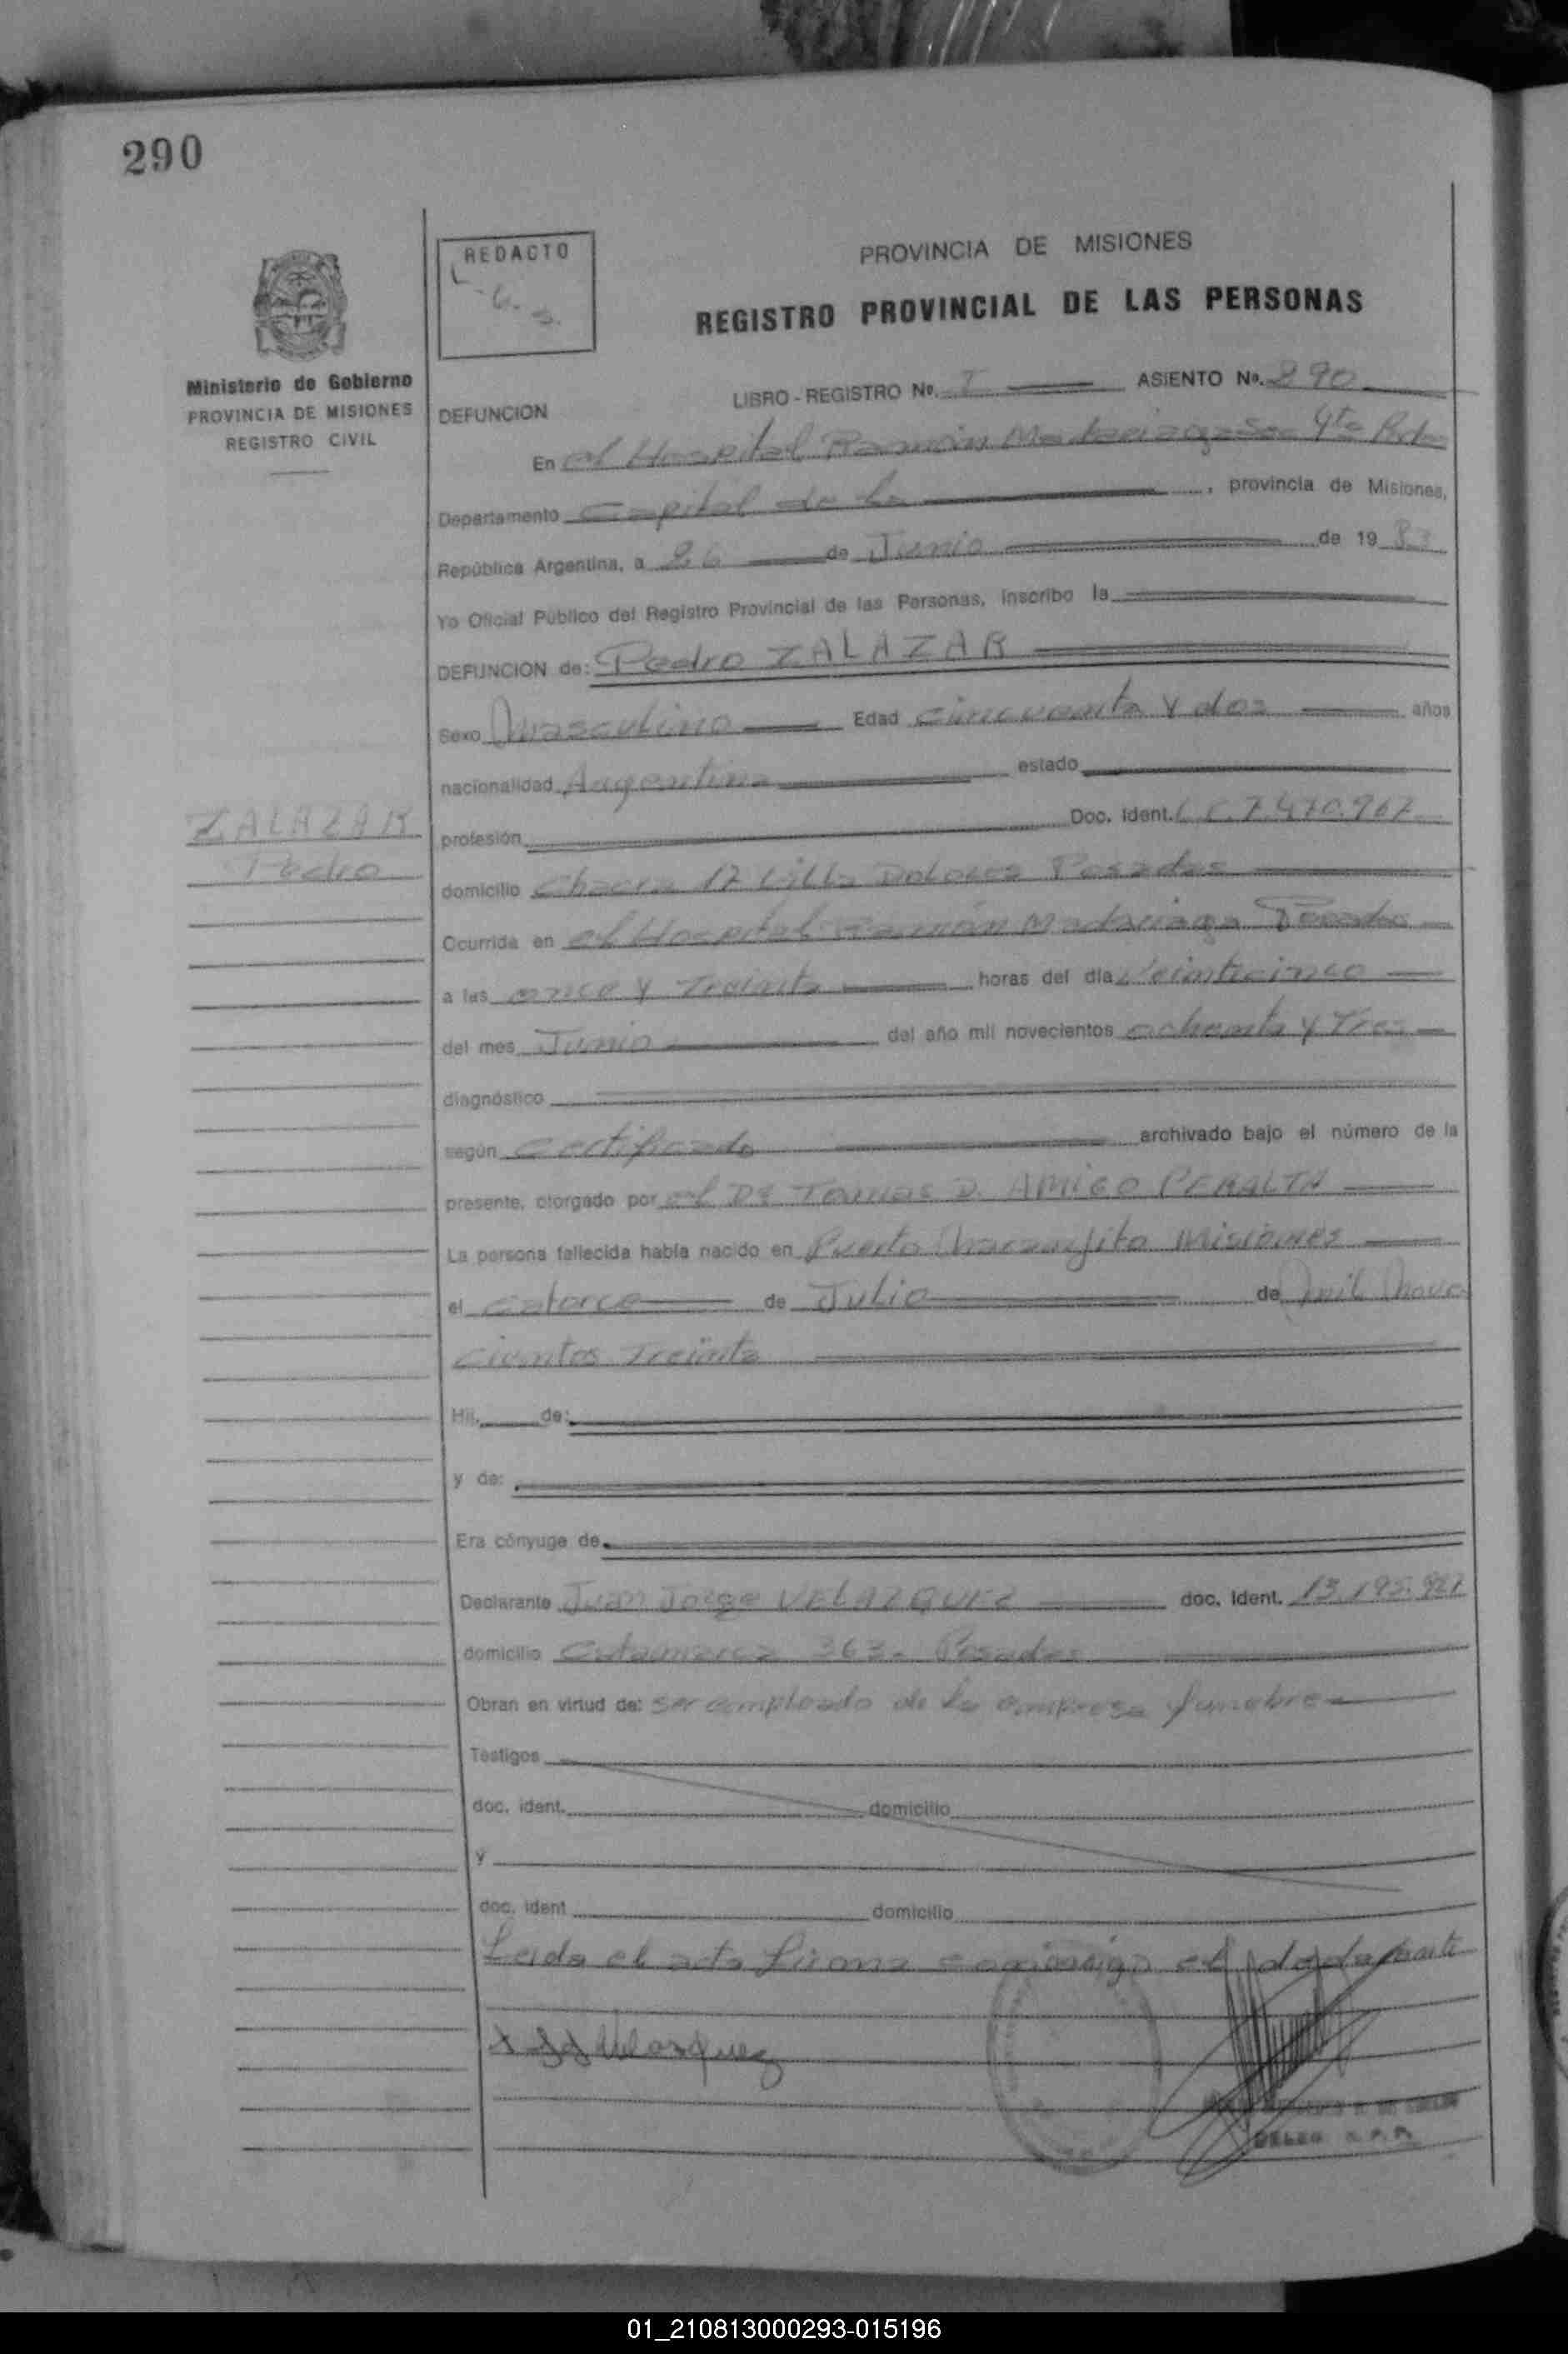 290
REDACTO
PROVINCIA DE MISIONES
REGISTRO PROVINCIAL DE LAS PERSONAS
Ministerio de Gobierno
PROVINCIA DE MISIONES
REGISTRO CIVIL
LIBRO - REGISTRO Nº. I ASIENTO Nº. 290
DEFUNCION
En el Hospital Ramón Madariaga Sec 4ta
Departamento Capital de la , provincia de Misiones,
República Argentina, a 26 de Junio de 19 83
Yo Oficial Público del Registro Provincial de las Personas, inscribo la
DEFUNCION de: Pedro ZALAZAR
Sexo Masculino Edad cincuenta y dos años
nacionalidad Argentina estado
ZALAZAR
Pedro
profesión Doc. Ident. 7.470.967
domicilio Chacra 17 Villa Dolores Posadas
Ocurrida en el Hospital Ramón Madariaga Posadas
a las once y Treinta horas del día Veinticinco
del mes Junio del año mil novecientos ochenta y Tres
diagnóstico
según certificado archivado bajo el número de la
presente, otorgado por el Dr Tomas D. AMIGO PERALTA
La persona fallecida había nacido en Puerto Naranjito Misiones
el catorce de Julio de mil nove
cientos Treinta
Hij. de:
y de:
Era cónyuge de
Declarante Juan Jorge VELAZQUEZ doc. Ident. 13.195.927
domicilio Catamarca 363- Posadas
Obran en virtud de: ser empleado de la empresa funebre
Testigos
doc. ident. domicilio
y
doc. ident domicilio
Leida el acta firma conmigo el declarante
Velasquez
01_210813000293-015196